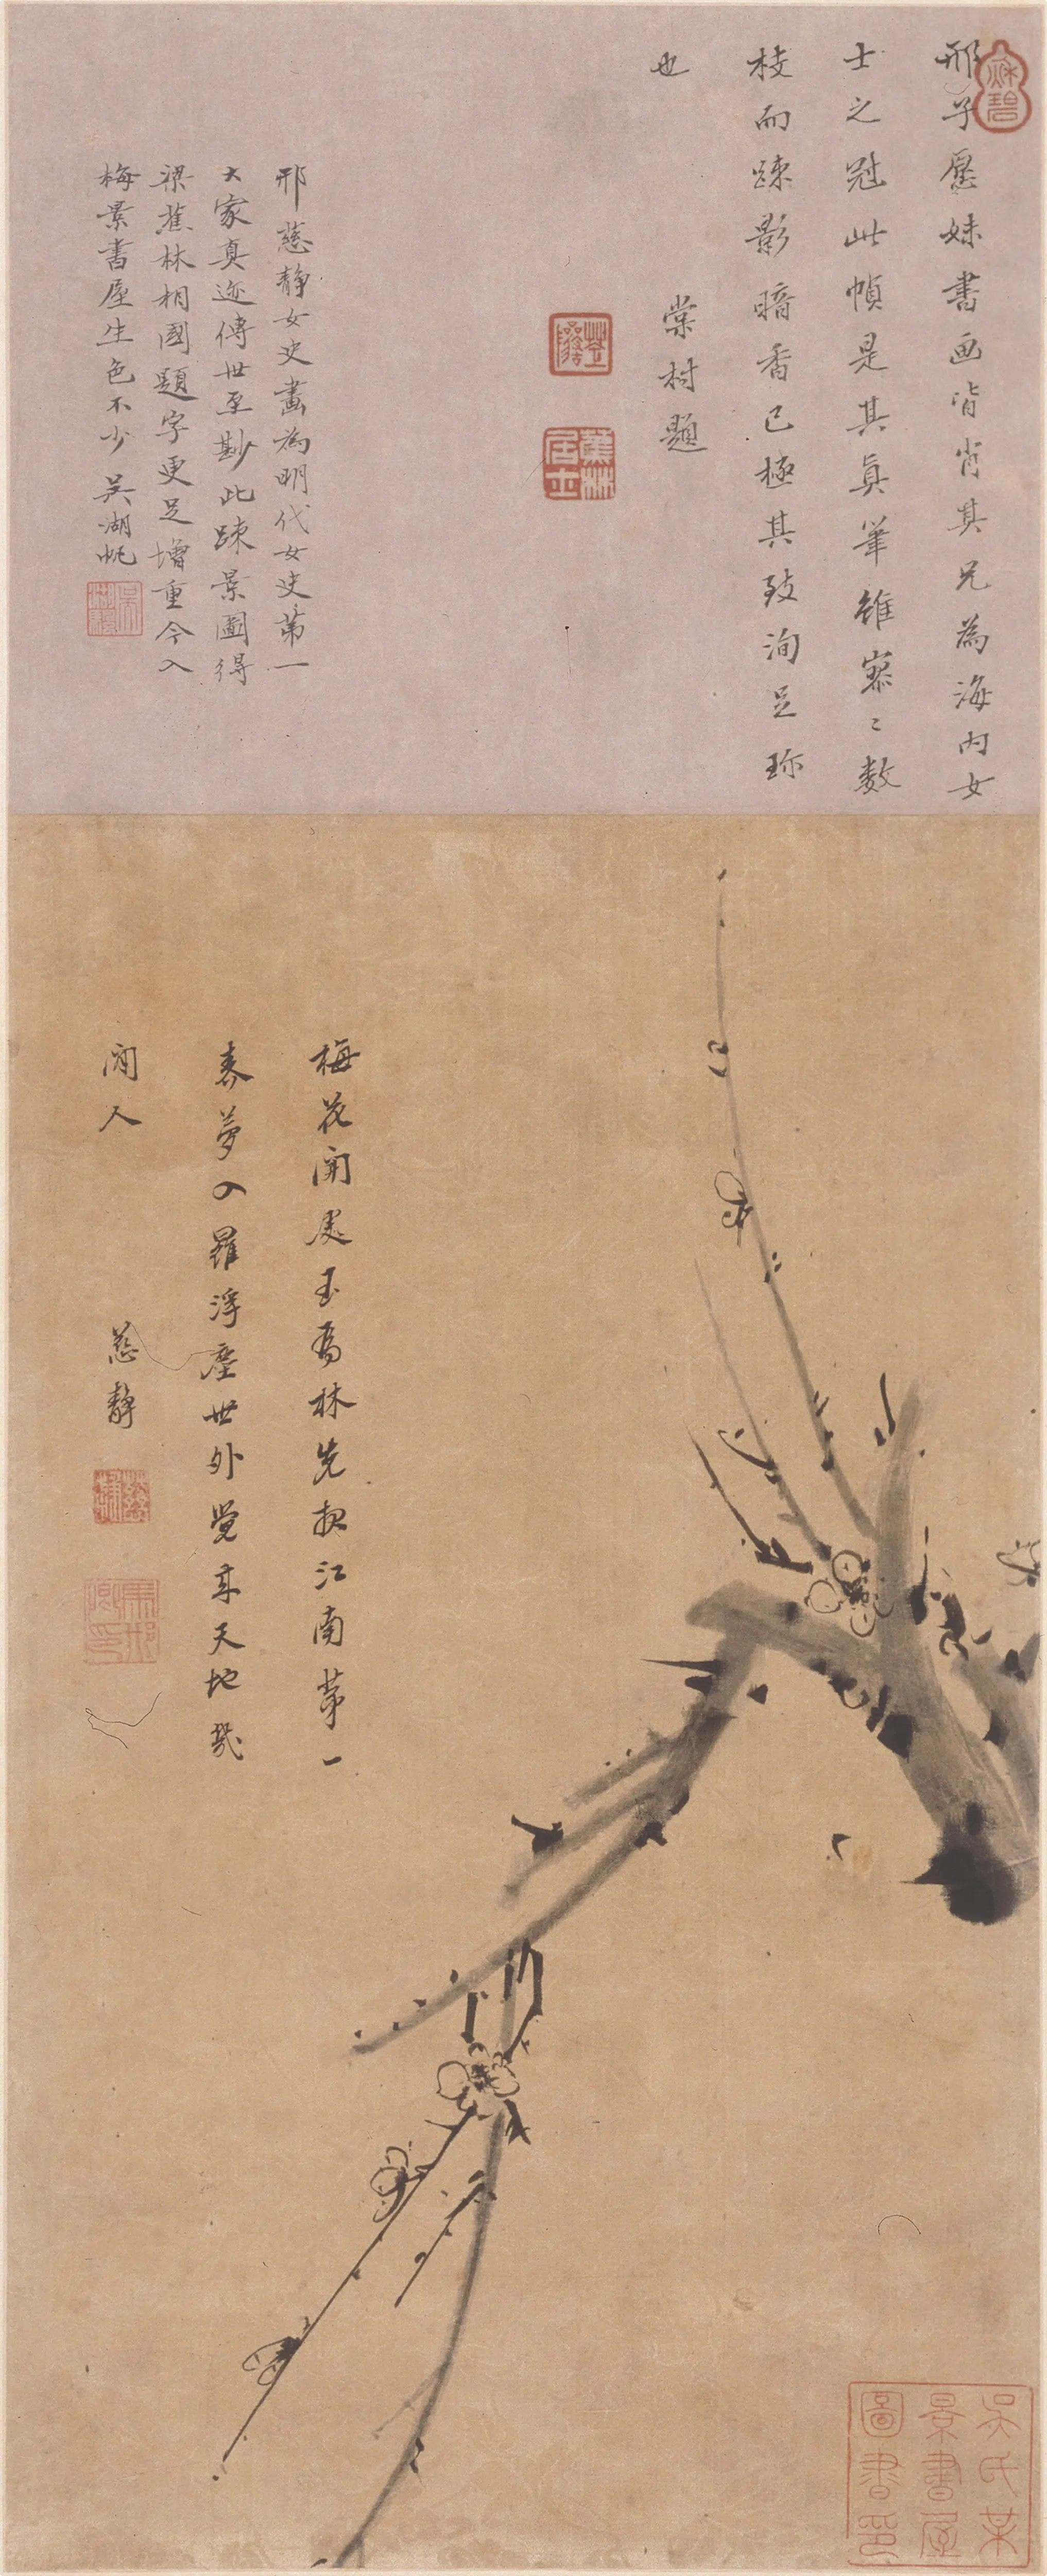 邢子愿妹書画皆肖其兄為海内女
士之冠此幀是其真筆雖寥〻数
枝而踈影暗香已極其致洵足珎
也
棠村題
蕉林居士
邢慈静女史畫為明代女史第一
大家真迹傳世至尠此踈景圖得
梁蕉林相國題字更足增重今入
梅景書屋生色不少 吴湖帆
梅花開處玉為林先報江南第一
春夢入羅浮塵世外覺来天地幾
閒人
慈静
吴氏某
景書屋
圖書印